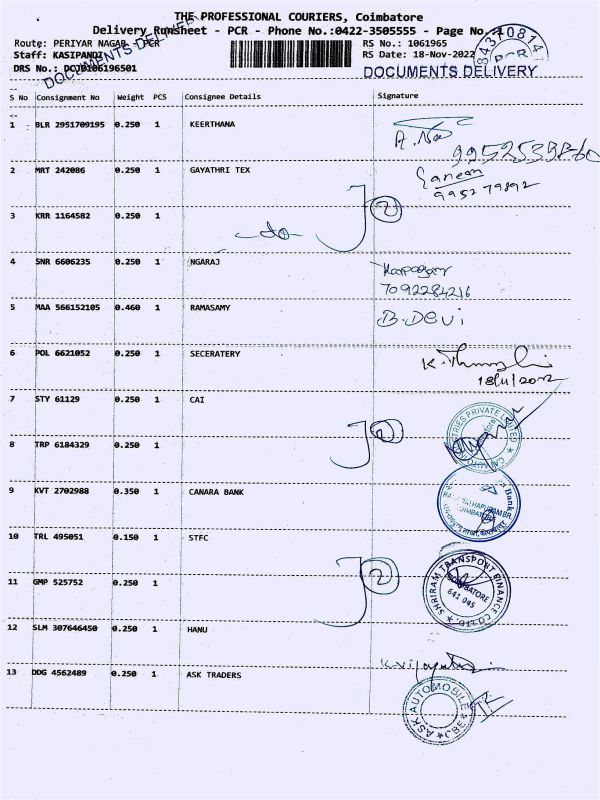 THE PROFESSIONAL COURIERS, Coimbatore
Delivery Runsheet - PCR - Phone No.:0422-3505555 - Page No.
Route: PERIYAR NAGAR - PCR
RS No.: 1061965
Staff: KASIPANDI
RS Date: 18-Nov-2022
DRS No.: DCJB106196501
DOCUMENTS DELIVERY
DOCUMENTS DELIVERY
S No Consignment No Weight PCS Consignee Details Signature
1 BLR 2951709195 0.250 1 KEERTHANA
2 MRT 242086 0.250 1 GAYATHRI TEX
9952 79892
3 KRR 1164582 0.250 1
4 SNR 6606235 0.250 1 NGARAJ
7092284216
5 MAA 566152105 0.460 1 RAMASAMY B.Devi
6 POL 6621052 0.250 1 SECERATERY
18/11/2022
7 STY 61129 0.250 1 CAI
8 TRP 6184329 0.250 1
9 KVT 2702988 0.350 1 CANARA BANK
10 TRL 495051 0.150 1 STFC
11 GMP 525752 1
SHRIRAM TRANSPORT FINANCE CO. LTD.
COIMBATORE
641 045
12 SLM 307646450 0.250 1 HANU
13 DDG 4562489 0.250 1 ASK TRADERS
ASK AUTOMOBILE